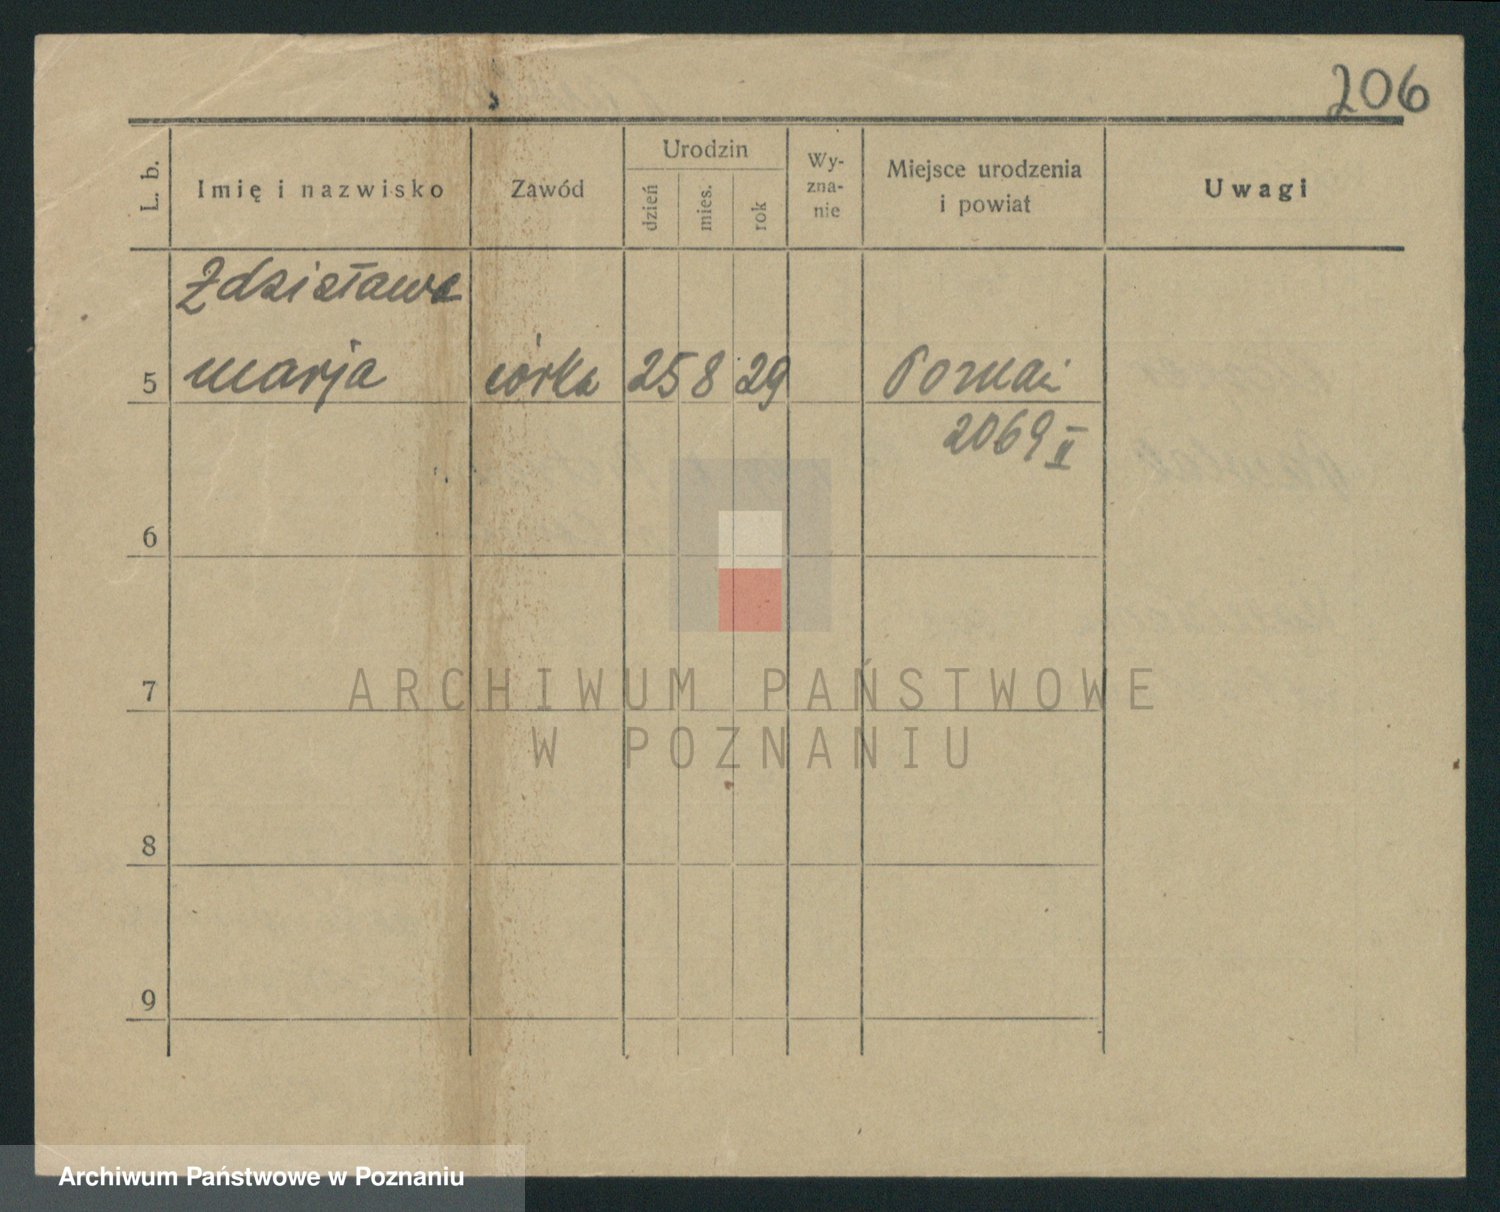 206
L. b.
Imię i nazwisko
Zawód
Urodzin
dzień
mies.
rok
Wy-
zna-
nie
Miejsce urodzenia
i powiat
Uwagi
Zdzisława
5 marja córka 25 8 29 Poznań
2069 II
6
7
8
9
ARCHIWUM PAŃSTWOWE
W POZNANIU
Archiwum Państwowe w Poznaniu